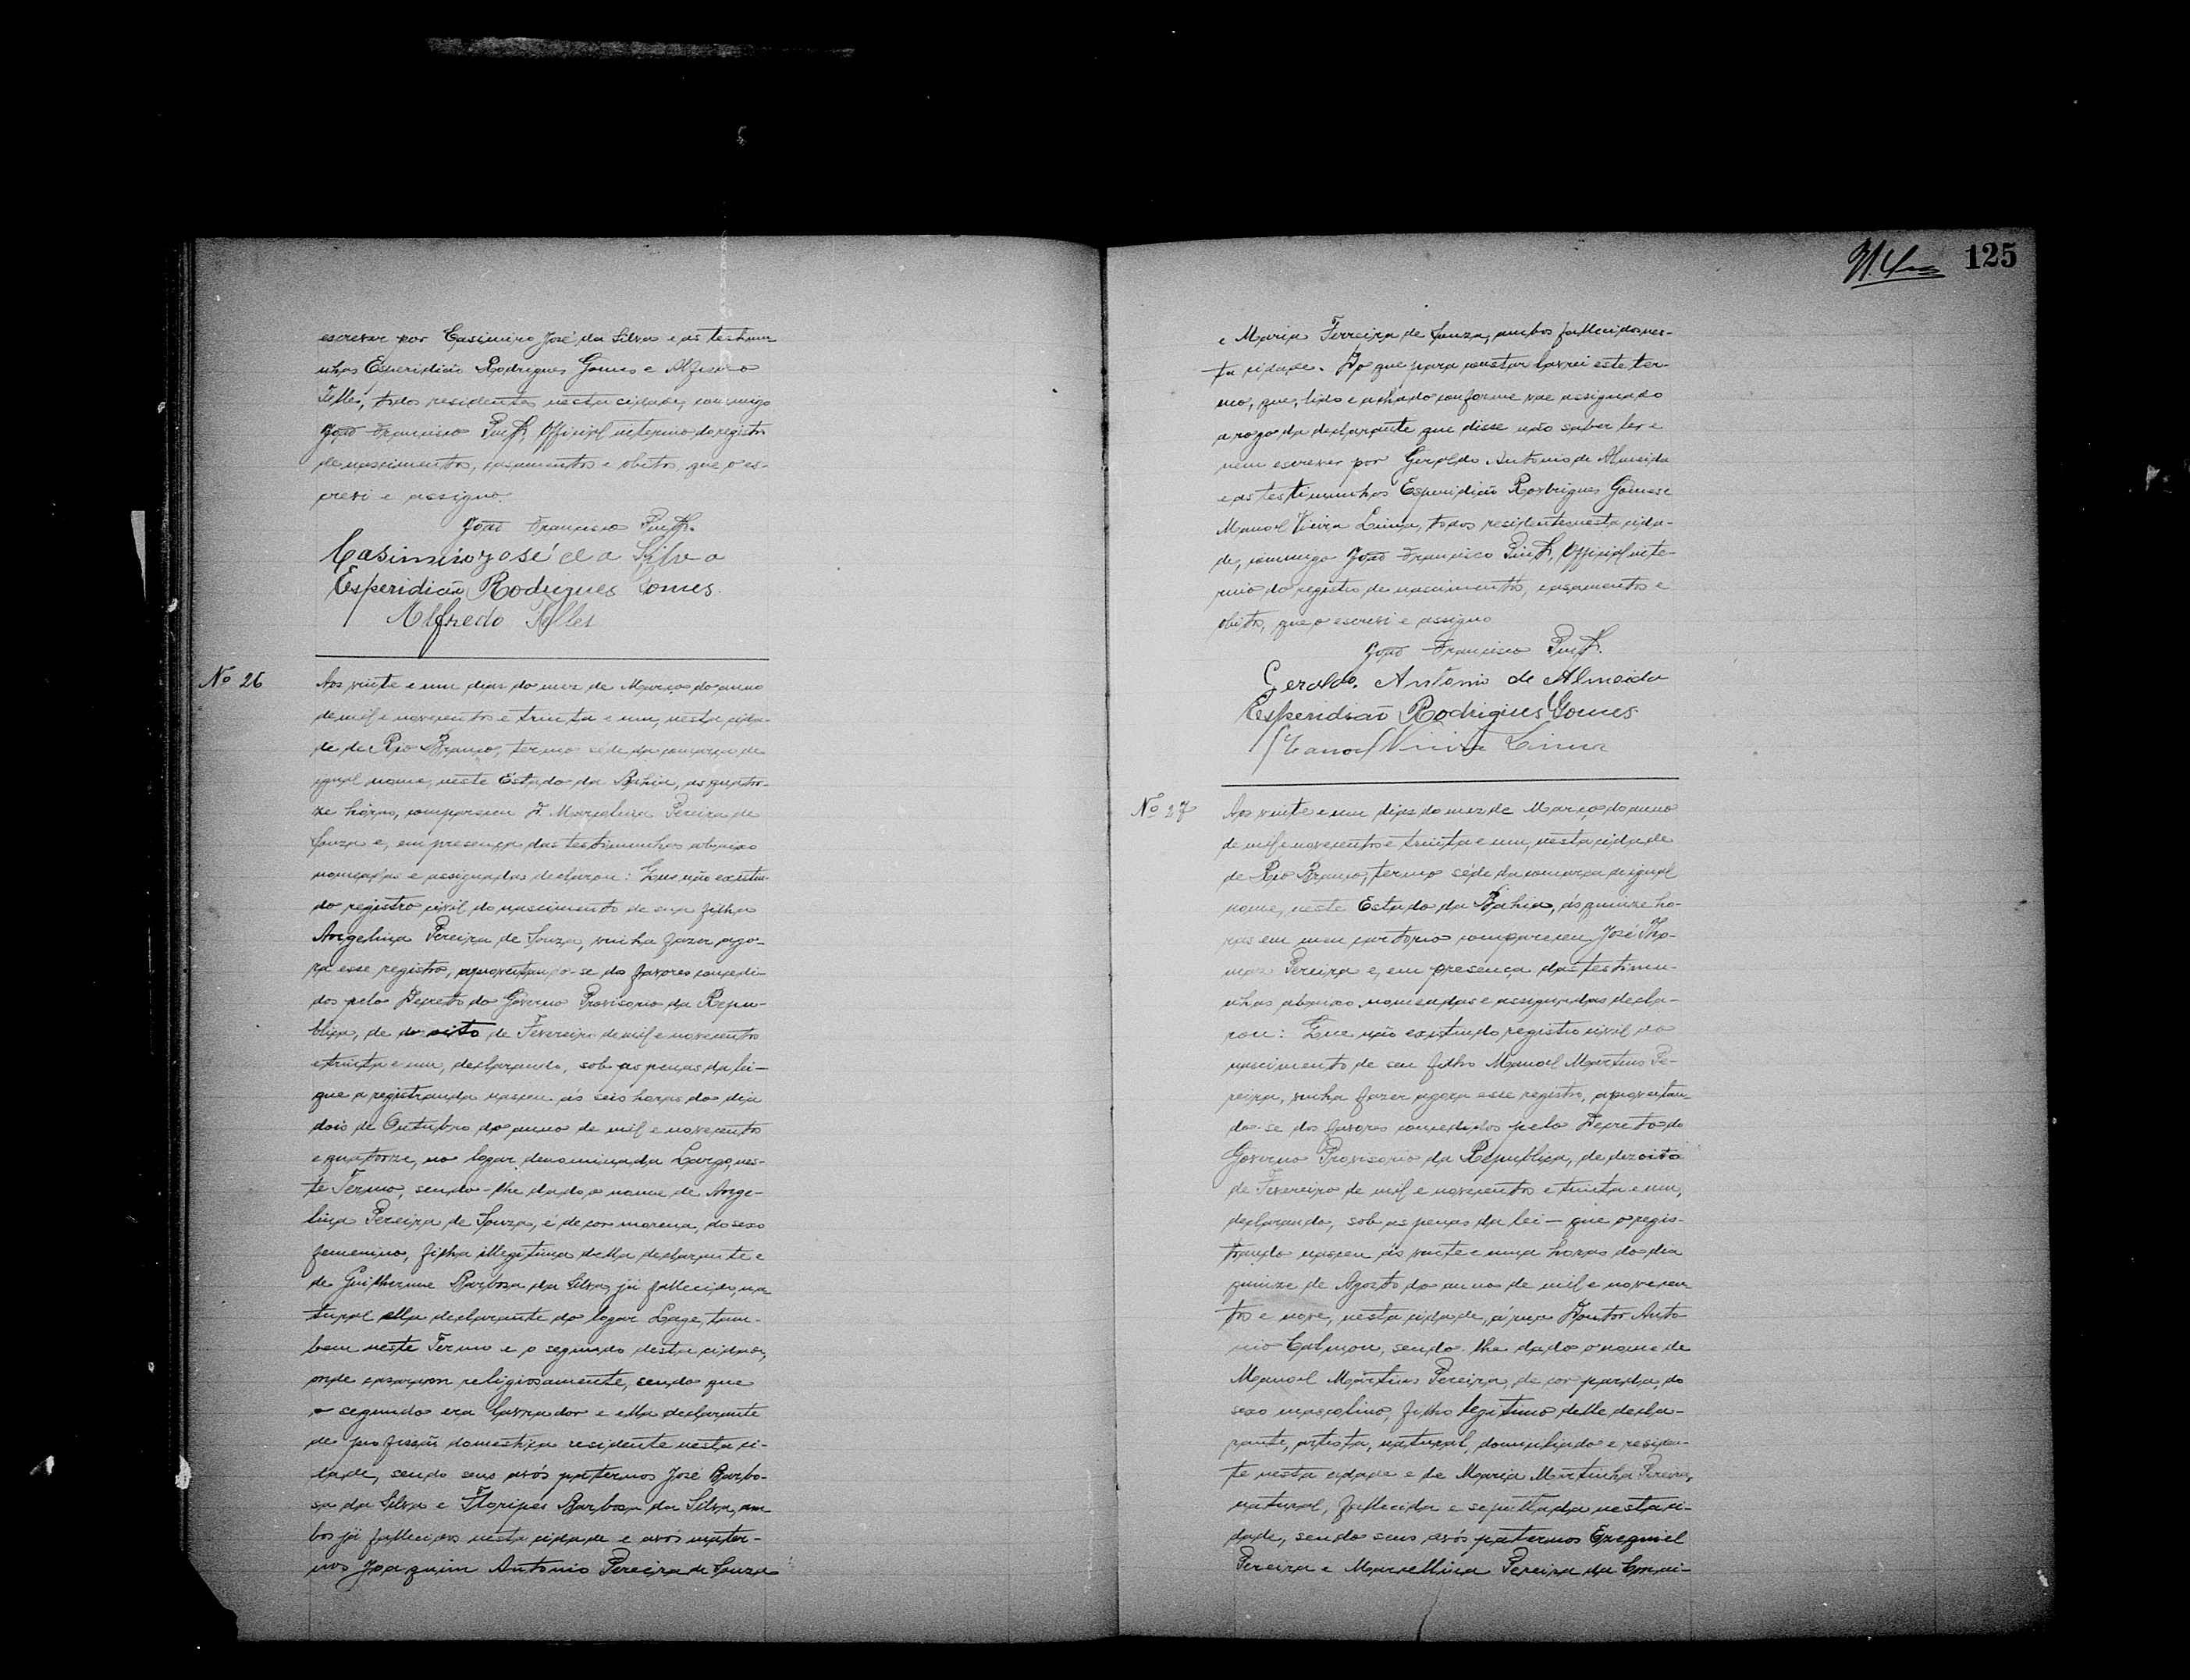 escrever por Casimiro José da Silva e as testemu-
nhas Esperidião Rodrigues Gomes e Alfredo
Telles, todos residentes nesta cidade, commigo
João Francisco Official interino do registro
de nascimentos, casamentos e obitos, que o es-
crevi e assigno.
João Francisco
Casimiro José da Silva
Esperidião Rodrigues Gomes
Alfredo Telles
Nº 26
Aos vinte e um dias do mez de Março do anno
de mil e novecentos e trinta e um, nesta cida-
de de Rio Branco, termo séde da comarca de
igual nome, neste Estado da Bahia, as quator-
ze horas, compareceu D. Marcolina Pereira de
Souza e, em presença das testimunhas abaixo
nomeadas e assignadas declarou: Que não existin-
do registro civil do nascimento de sua filha
Angelina Pereira de Souza, vinha fazer ago-
ra esse registro, aproveitando-se dos favores concedi-
dos pelo Decreto do Governo Provisorio da Repu-
blica, de dezoito de Fevereiro de mil e novecentos
e trinta e um, declarando, sob as penas da lei-
que a registranda nasceu ás seis horas do dia
dois de Outubro do anno de mil e novecentos
e quatorze, no logar denominada Largo, nes-
te Termo, sendo-lhe dado o nome de Ange-
lina Pereira de Souza, é de cor morena, do sexo
femenino, filha illegitima della declarante e
de Guilherme Barbosa da Silva, já fallecido, na
tural ella declarante do logar Lage, tam-
bem neste Termo e o segundo desta cidade,
onde casaram religiosamente, sendo que
o segundo era lavrador e ella declarante
de profissão domestica residente nesta ci-
dade, sendo seus avós paternos José Barbo-
sa da Silva e Floripes Barbosa da Silva, am-
bos já fallecidos nesta cidade e avós mater-
nos Joaquim Antonio Pereira de Souza
125
e Maria Ferreira de Souza, ambos fallecidos nes-
ta cidade. Do que para constar lavrei este ter-
mo, que, lido e achado conforme vae assignado
a rogo da declarante que disse não saber ler e
nem escrever por Geraldo Antonio de Almeida
e as testimunhas Esperidião Rodrigues Gomes e
Manoel Vieira Lima, todos residentes nesta cida-
de, commigo João Francisco Official inte-
rino do registro de nascimentos, casamentos e
obitos, que o escrevi e assigno
João Francisco
Geraldo Antonio de Almeida
Esperidião Rodrigues Gomes
Manoel Vieira Lima
Nº 27
Aos vinte e um dias do mez de Março do anno
de mil e novecentos e trinta e um, nesta cidade
de Rio Branco, termo séde da comarca de igual
nome, neste Estado da Bahia, ás quinze ho-
ras em meu cartorio compareceu José Tho-
maz Pereira e, em presença das testimu-
nhas abaixo nomeadas e assignadas decla-
rou: Que não existindo registro civil do
nascimento de seu filho Manoel Martins Pe-
reira, vinha fazer agora esse registro, aproveitan
do-se dos favores concedidos pelo Decreto do
Governo Provisorio da Republica, de dezoito
de Fevereiro de mil e novecentos e trinta e um,
declarando, sob as penas da lei - que o regis-
trando nasceu ás vinte e uma horas do dia
quinze de Agosto do anno de mil e novecen
tos e nove, nesta cidade, á rua Doutor Anto
nio Calmon, sendo-lhe dado o nome de
Manoel Martins Pereira, de cor parda, do
sexo masculino, filho legitimo delle decla-
rante, artista, natural, domiciliado e residen-
te nesta cidade e de Maria Martinha Pereira,
natural, fallecida e sepultada nesta ci-
dade, sendo seus avós paternos Ezequiel
Pereira e Marcellina Pereira da